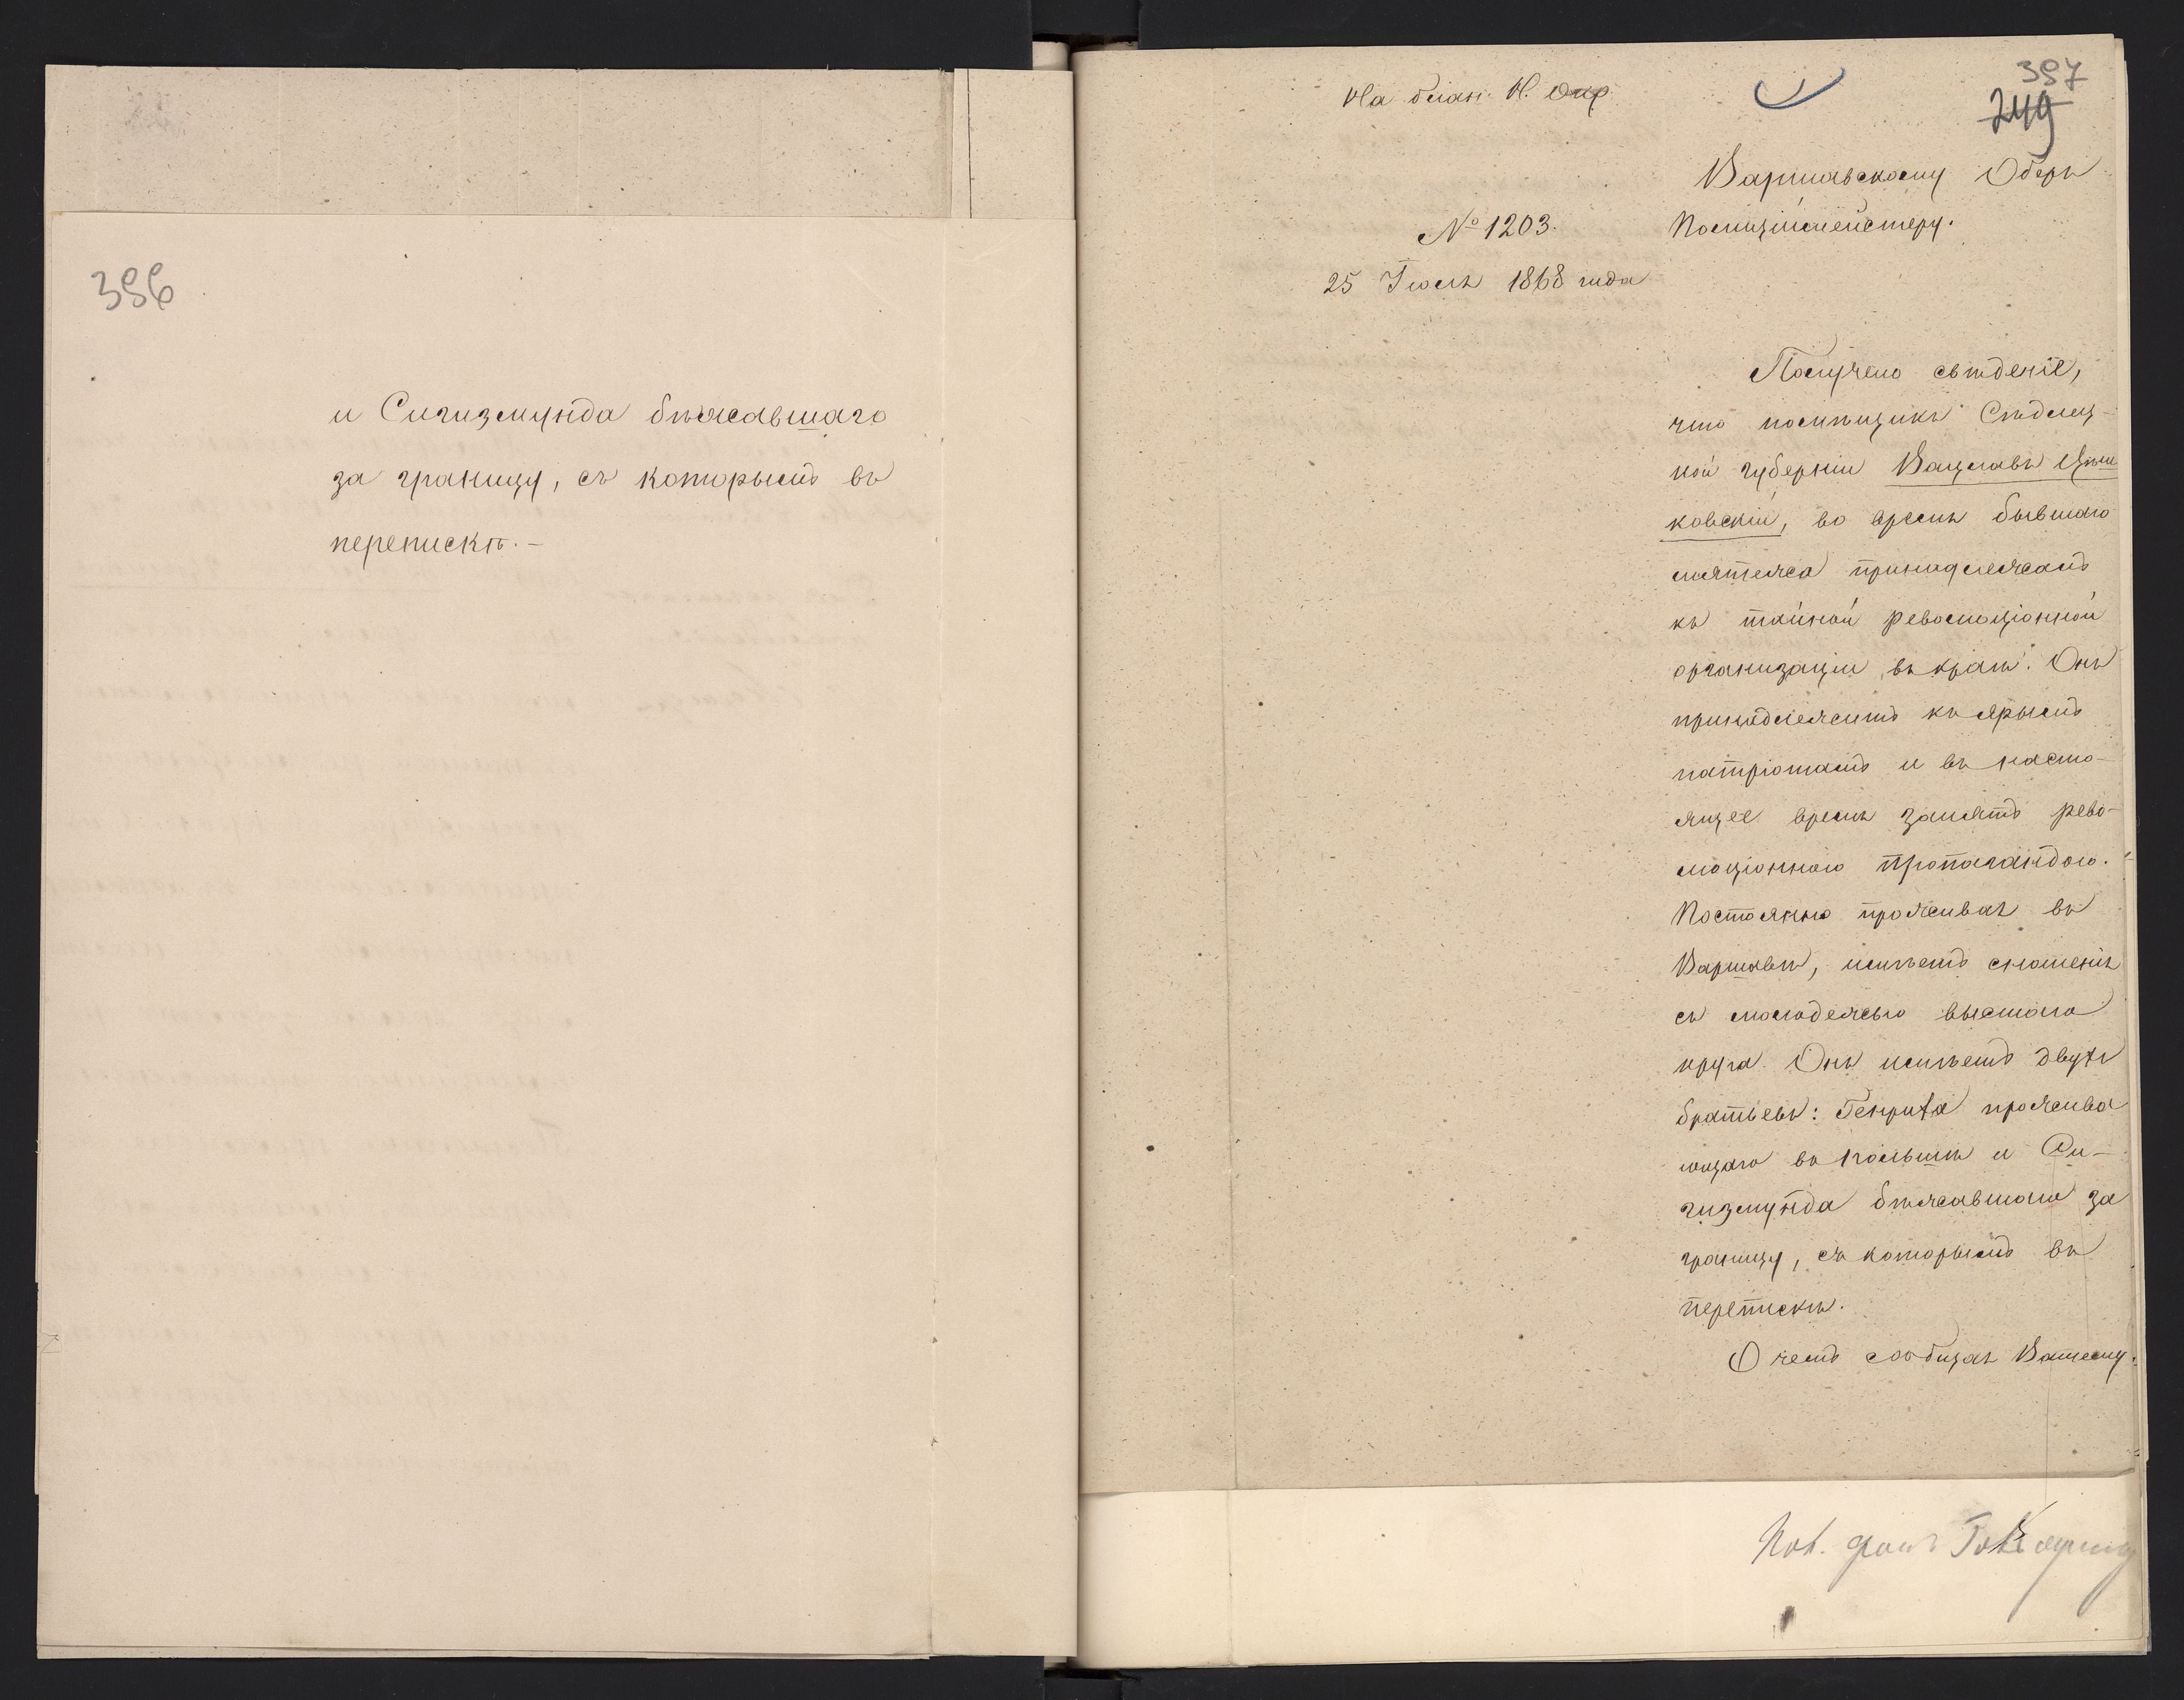 396
и Сигизмунда бѣжавшаго
за границу, съ которымъ въ
перепискѣ.—
397
249
На блан. Н. Окр.
Варшавскому Оберъ
Полиціймейстеру.
№ 1203.
25 Іюля 1868 года
Получено свѣденіе,
что помѣщикъ Сѣдлец-
кой губерніи Вацлавъ
ковскій, во время бывшаго
мятежа принадлежалъ
къ тайной революціонной
организаціи въ краѣ. Онъ
принадлежитъ къ ярымъ
патріотамъ и въ насто-
ящее время занятъ рево-
люціонною пропагандою.
Постоянно проживая въ
Варшавѣ, имѣетъ сношенія
съ молодежью высшаго
круга. Онъ имѣетъ двухъ
братьевъ: Генриха прожива
ющаго въ Польшѣ и Си-
гизмунда бѣжавшаго за
границу, съ которымъ въ
перепискѣ.
О чемъ сообщая Вашему